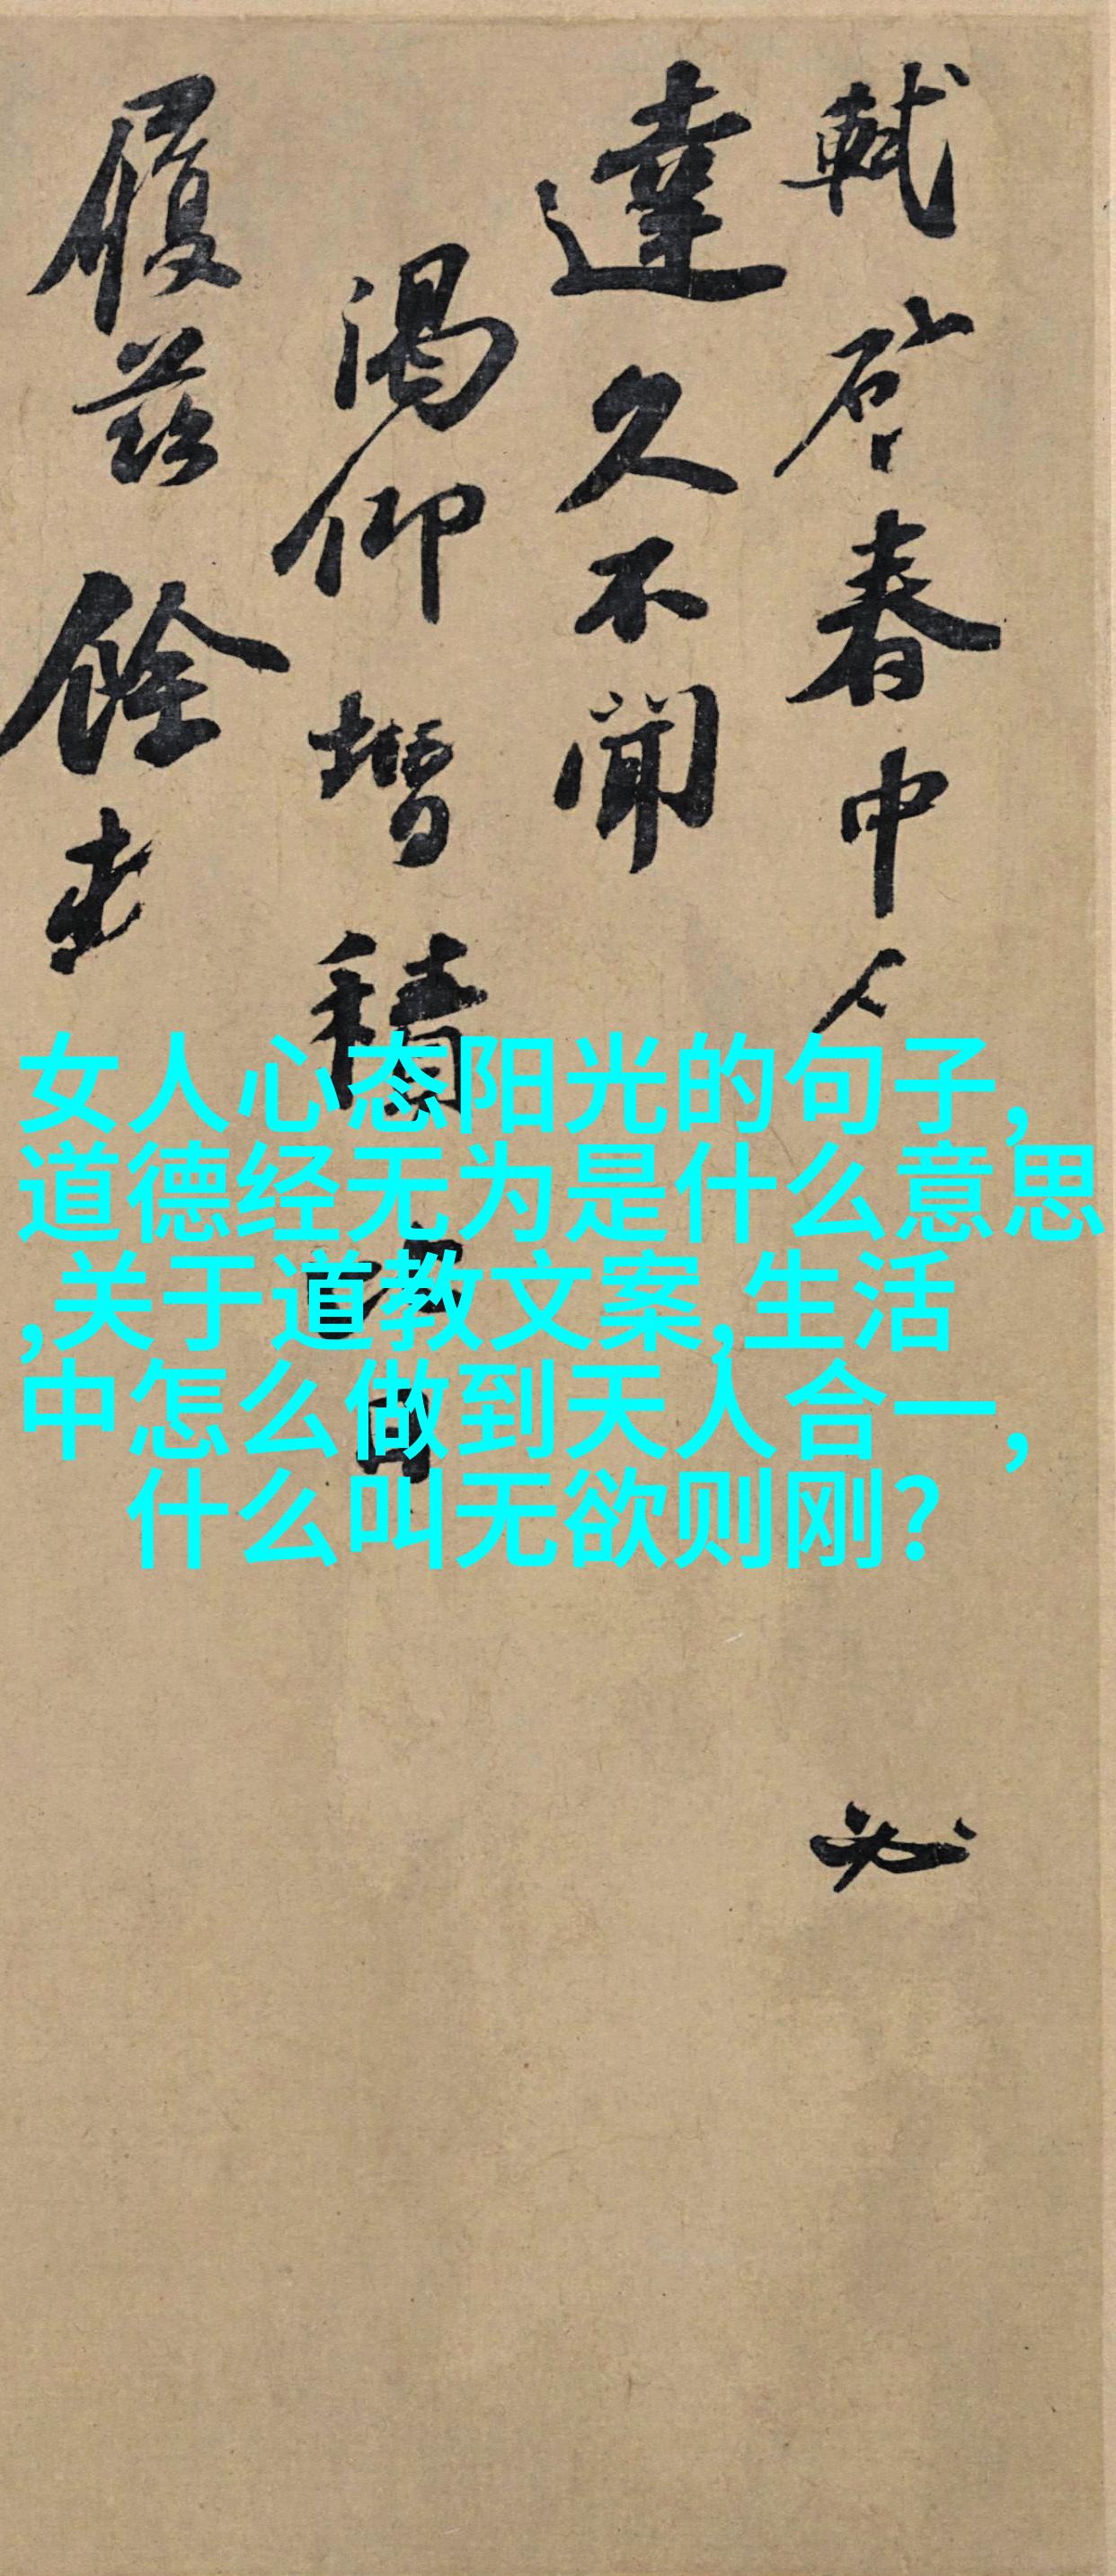 軾啓春中人必
達久不聞
渴仰增積比日
履茲餘
女人心态阳光的句子,
道德经无为是什么意思
,关于道教文案,生活
中怎么做到天人合一,
什么叫无欲则刚?